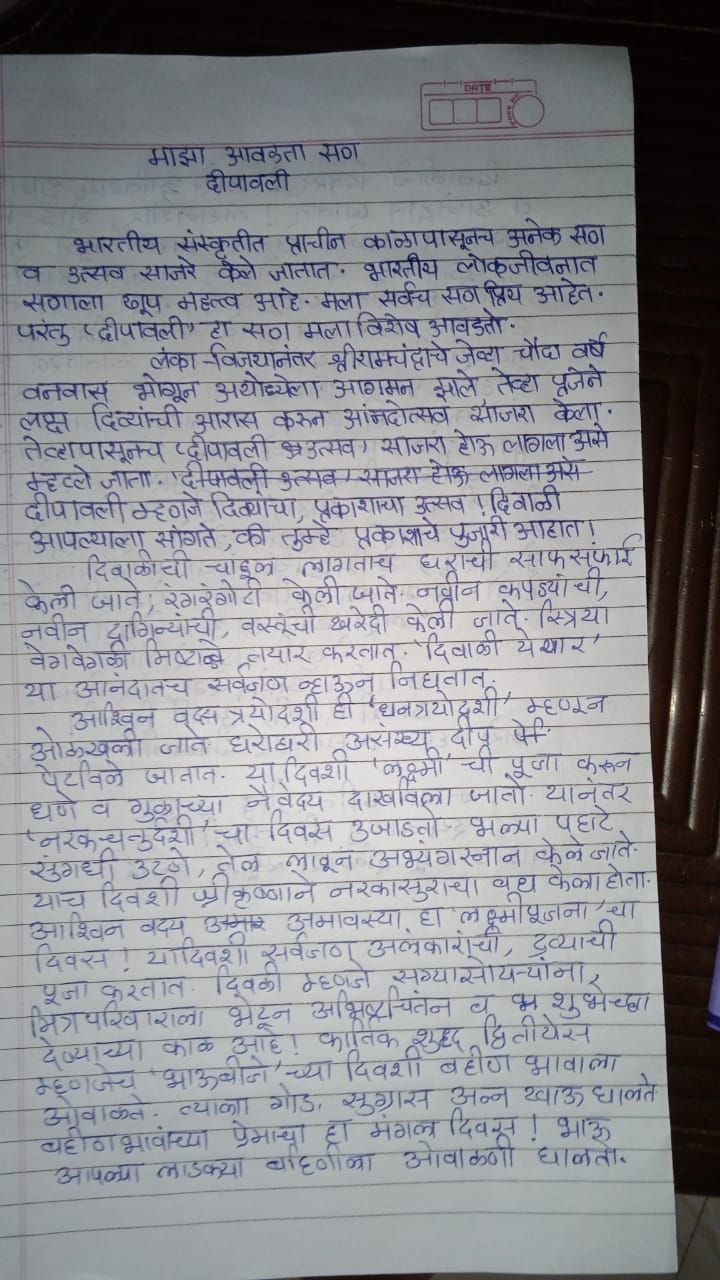 DATE
माझा आवडता सण
दीपावली
भारतीय संस्कृतीत प्राचीन काळापासूनच अनेक सण
व उत्सव साजरे केले जातात. भारतीय लोकजीवनात
सणाला खूप महत्व आहे. मला सर्वच सण प्रिय आहेत.
परंतु 'दीपावली' हा सण मला विशेष आवडतो.
लंका-विजयानंतर श्रीरामचंद्राचे जेव्हा चौदा वर्षे
वनवास भोगून अयोध्येला आगमन झाले तेव्हा प्रजेने
लक्ष दिव्यांची आरास करून आंनदोत्सव साजरा केला.
तेव्हापासूनच 'दीपावली उत्सव' साजरा होऊ लागला असे
म्हटले जाता. 'दीपावली उत्सव' साजरा होऊ लागला असे
दीपावली म्हणजे दिव्यांचा, प्रकाशाचा उत्सव! दिवाळी
आपल्याला सांगते, की तुम्हे प्रकाशाचे पुजारी आहात!
दिवाळीची चाहूल लागताच घराची साफसफाई
केली जाते, रंगरंगोटी केली जाते. नवीन कपड्यांची,
नवीन दागिन्यांची, वस्तूंची खरेदी केली जाते. स्त्रिया
वेगवेगळी मिष्टान्ने तयार करतात. 'दिवाळी येणार'
या आनंदातच सर्वजण न्हाऊन निघतात.
आश्विन वद्य त्रयोदशी ही 'धनत्रयोदशी' म्हणून
ओळखली जाते. घरोघरी असंख्य दीप
पेटविले जातात. या दिवशी 'लक्ष्मी' ची पूजा करून
धणे व गुळाच्या नैवेदय दाखविला जातो. यानंतर
'नरकचतुर्दशी' चा दिवस उजाडतो. भल्या पहाटे
सुंगधी उटणे, तेल लावून अभ्यंगस्नान केले जाते.
याच दिवशी श्रीकृष्णाने नरकासुराचा वध केला होता.
आश्विन वदय अमावस्या हा 'लक्ष्मीपूजना' चा
दिवस! यादिवशी सर्वजण अलंकारांची, द्रव्याची
पूजा करतात. दिवळी म्हणजे सग्यासोयऱ्यांना,
मित्रपरिवाराला भेटून अभिष्टचिंतन व शुभेच्छा
देण्याच्या काळ आहे! कार्तिक शुद्ध द्वितीयेस
म्हणजेच 'भाऊबीजे' च्या दिवशी बहीण भावाला
ओवाळते. त्याला गोड, सुग्रास अन्न खाऊ घालते
बहीणभावांच्या प्रेमाचा हा मंगल दिवस! भाऊ
आपल्या लाडक्या बहिणीला ओवाळणी घालतो.